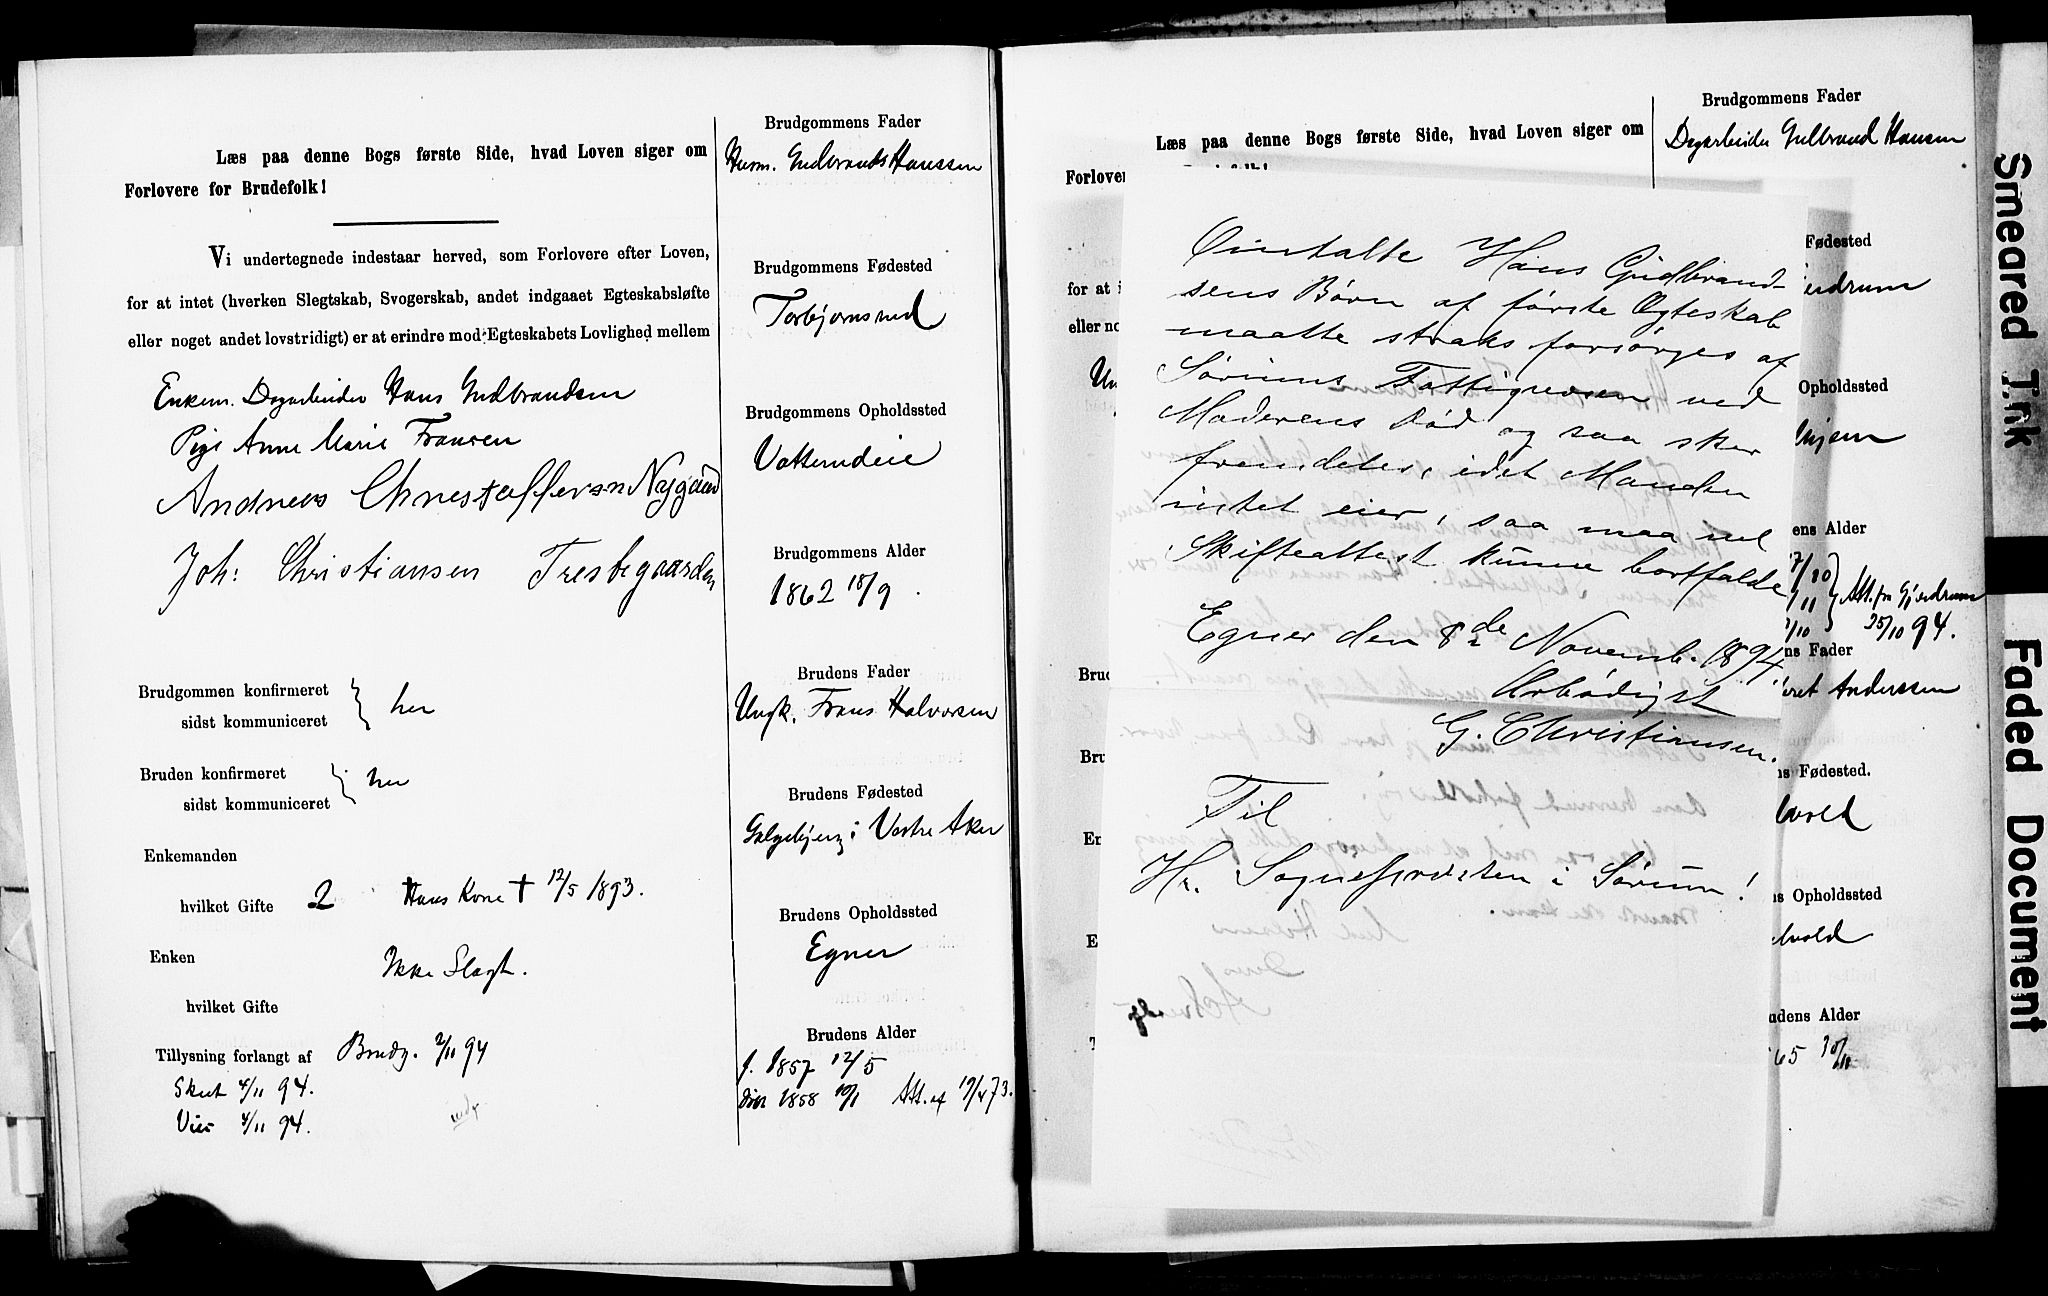 Læs paa denne Bogs første Side, hvad Loven siger om
Forlovere for Brudefolk!
Vi undertegnede indestaar herved, som Forlovere efter Loven,
for at intet (hverken Slegtskab, Svogerskab, andet indgaaet Egteskabsløfte
eller noget andet lovstridigt) er at erindre mod Egteskabets Lovlighed mellem
Enkem. Dagarbeider Hans Gudbrandsen
Pige Anne Marie Fransen
Andreas Christoffersen Nygaard
Joh: Christiansen Tresbegaarden
Brudgommen konfirmeret
sidst kommuniceret } her
Bruden konfirmeret
sidst kommuniceret } her
Enkemanden
hvilket Gifte 2 Hans Kone † 12/5 1893.
Enken Ikke Slægt.
hvilket Gifte
Tillysning forlangt af Brudg. 2/11 94
Skut 4/11 94.
Viet 4/11 94.
Brudgommens Fader
Husm. Gudbrand Hanssen
Brudgommens Fødested
Torbjørnsrud
Brudgommens Opholdssted
Vatterudeie
Brudgommens Alder
1862 18/9.
Brudens Fader
Ungk. Frans Halvorsen
Brudens Fødested
Galgebjerg i Vestre Aker
Brudens Opholdssted
Egner
Brudens Alder
f. 1857 12/5
døbt 1858 10/1 Att. af 19/4 73.
Læs paa denne Bogs første Side, hvad Loven siger om
Forlover
for at i
eller no
Un
Bru
Bru
En
E
Omtalte Hans Gudbrand-
sens Børn af første Ægteskab
maatte straks forsørges af
Sørums Fattigvæsen ved
Moderens Død og saa sker
fremdeles, idet Manden
intet eier, saa maa vel
Skifteattest kunne bortfalde
Egner den 8de Novemb. 1894.
Ærbødigst
G. Christiansen.
Til
Hr. Sognepræsten i Sørum!
Brudgommens Fader
Dagarbeider Gulbrand Hansen
Fødested
Opholdssted
ens Alder
Att. fra Gjerdrum
25/10 94.
ns Fader
Anderssen
ns Fødested.
s Opholdssted
udens Alder
65 30/11
Smeared Ink
Faded Document